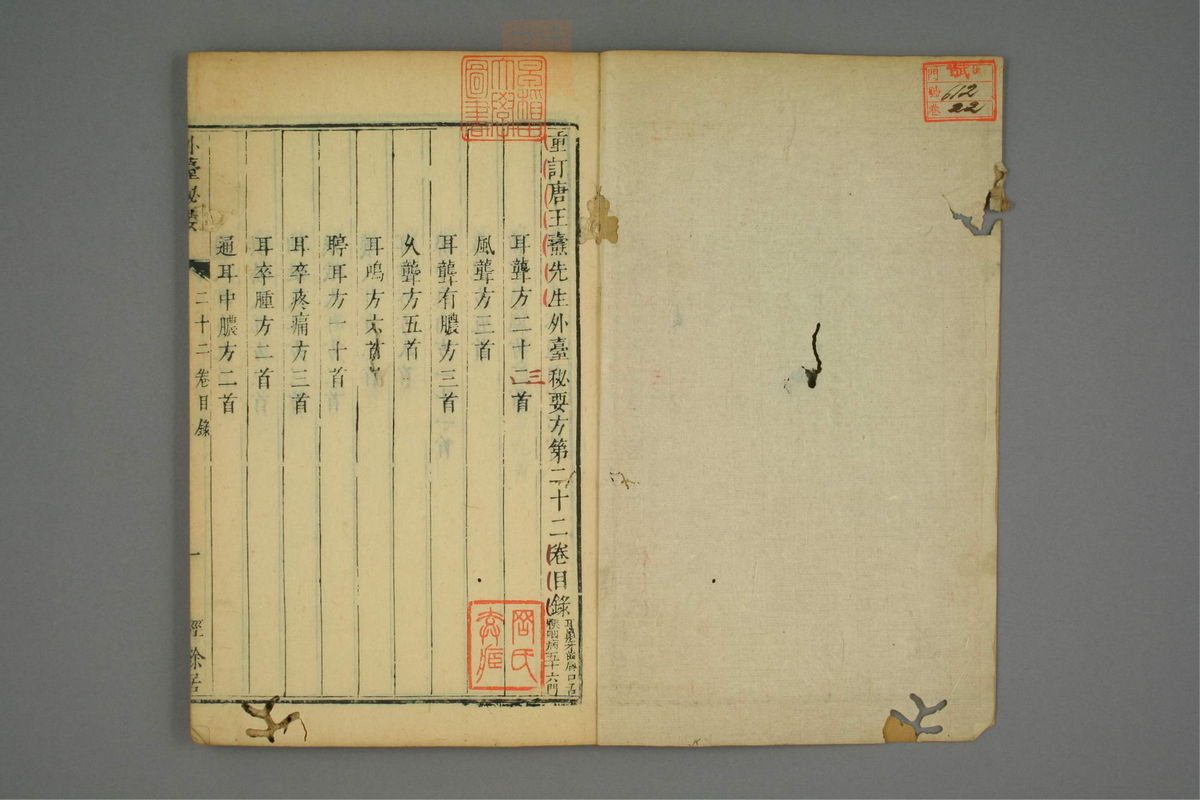 門 號 卷
612
22
早稻田大學圖書
重訂唐王燾先生外臺秘要方第二十二卷目錄
耳鼻牙齒唇口舌
喉咽病五十六門
耳聾方二十二首
三
風聾方三首
耳聾有膿方三首
久聾方五首
耳鳴方六首
聤耳方一十首
耳卒疼痛方三首
耳卒腫方二首
通耳中膿方二首
外臺秘要
二十二卷目錄
一
經餘居